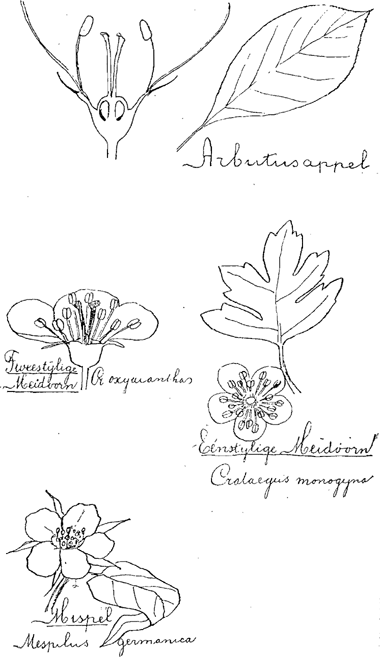 Arbutusappel
Tweestijlige
Meidoorn
C oxyacanthas
Eénstylige Meidoorn
Crataegus monogyna
Mispel
Mespilus germanica